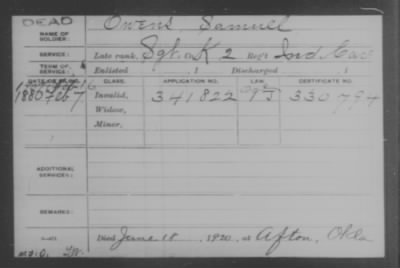 DEAD
Owens, Samuel
NAME OF
SOLDIER:
SERVICE:
Late rank, Sgt. Co. K 2 Reg't Ind Cav
TERM OF
SERVICE:
Enlisted , 1 Discharged , 1
DATE OF FILING
CLASS.
APPLICATION NO.
LAW.
CERTIFICATE NO.
1880 Feb 7
Invalid,
341822
330794
Widow,
Minor,
ADDITIONAL
SERVICES:
REMARKS:
Died June 18, 1920, at Afton, Okla